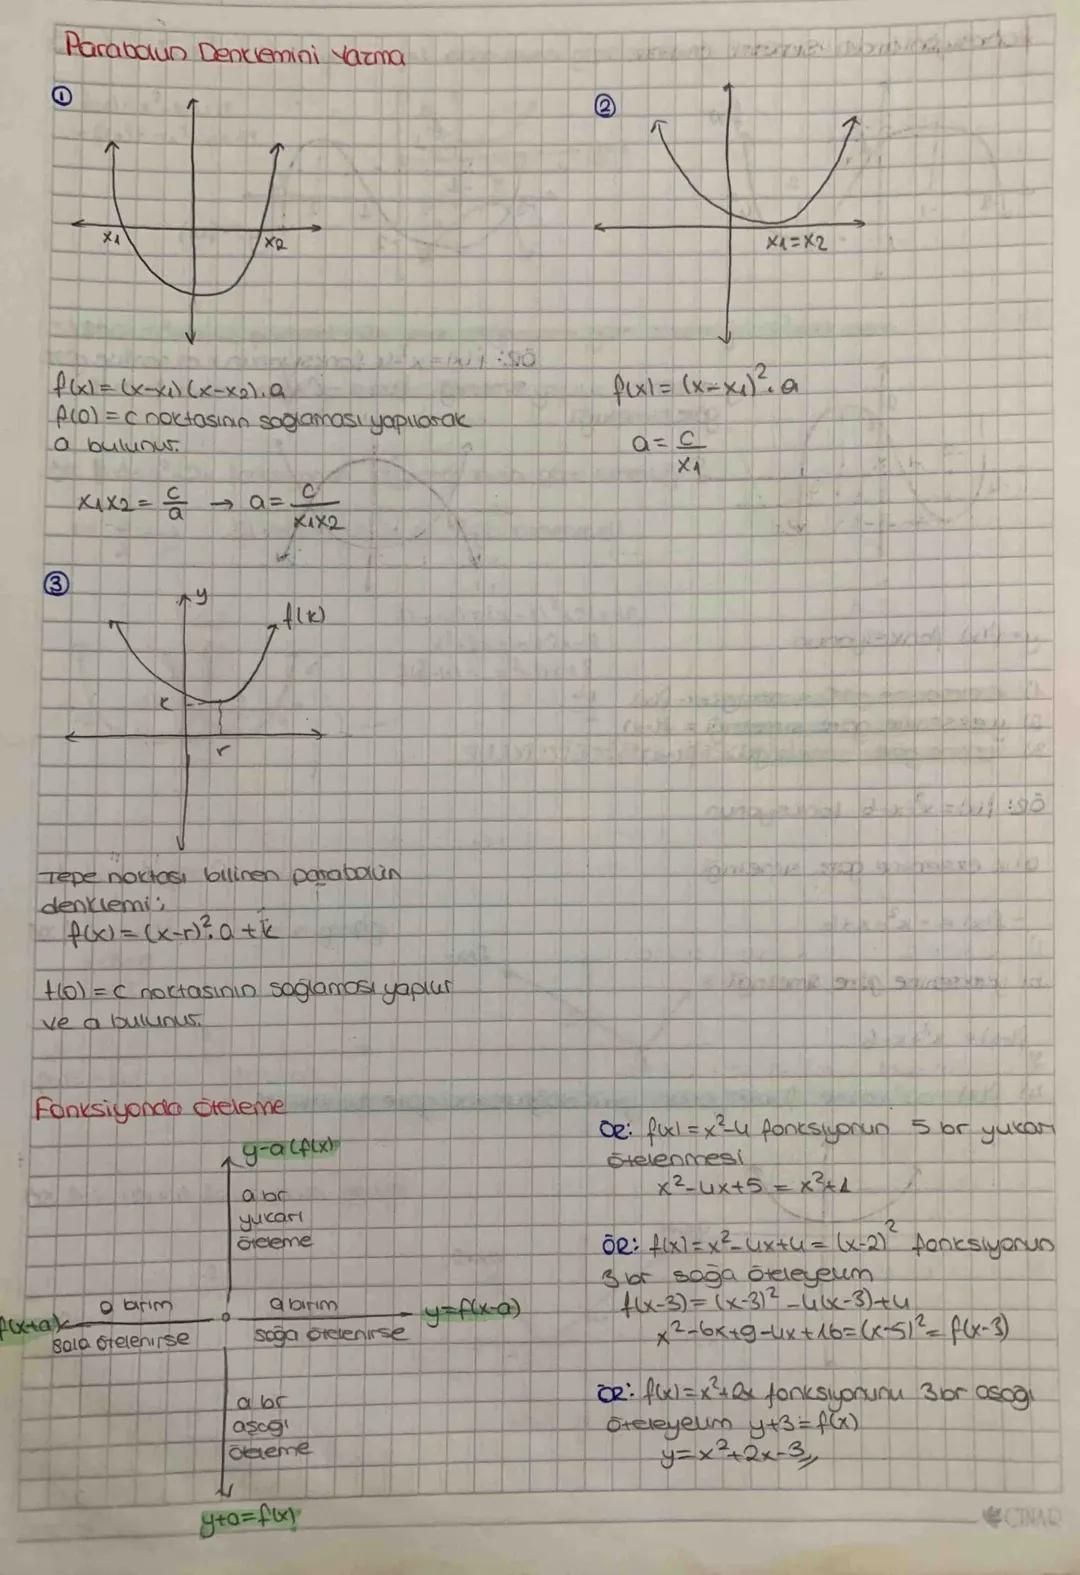 Parabolün Denklemini Yazma
①
x1
x2
f(x)=(x-x1)(x-x2).a
f(0)=c noktasının sağlaması yapılarak
a bulunur.
x1x2=c/a → a=c/x1x2
②
x1=x2
f(x)=(x-x1)².a
a=c/x1
③
y
f(x)
k
r
Tepe noktası bilinen parabolün
denklemi;
f(x)=(x-r)².a+k
f(0)=c noktasının sağlaması yapılır
ve a bulunur.
Fonksiyonda öteleme
y-a(f(x)
a br
yukarı
öteleme
f(x+a)
a birim
sola ötelenirse
a birim
sağa ötelenirse
y=f(x-a)
a br
aşağı
öteleme
y+a=f(x)
ÖR: f(x)=x²-4 fonksiyonun 5 br yukarı
ötelenmesi
x²-4x+5=x²+1
ÖR: f(x)=x²-4x+4=(x-2)² fonksiyonun
3 br sağa öteleyelim
f(x-3)=(x-3)²-4(x-3)+4
x²-6x+9-4x+16=(x-5)²=f(x-3)
ÖR: f(x)=x²+2x fonksiyonunu 3 br aşağı
öteleyelim y+3=f(x)
y=x²+2x-3
ÇINAR